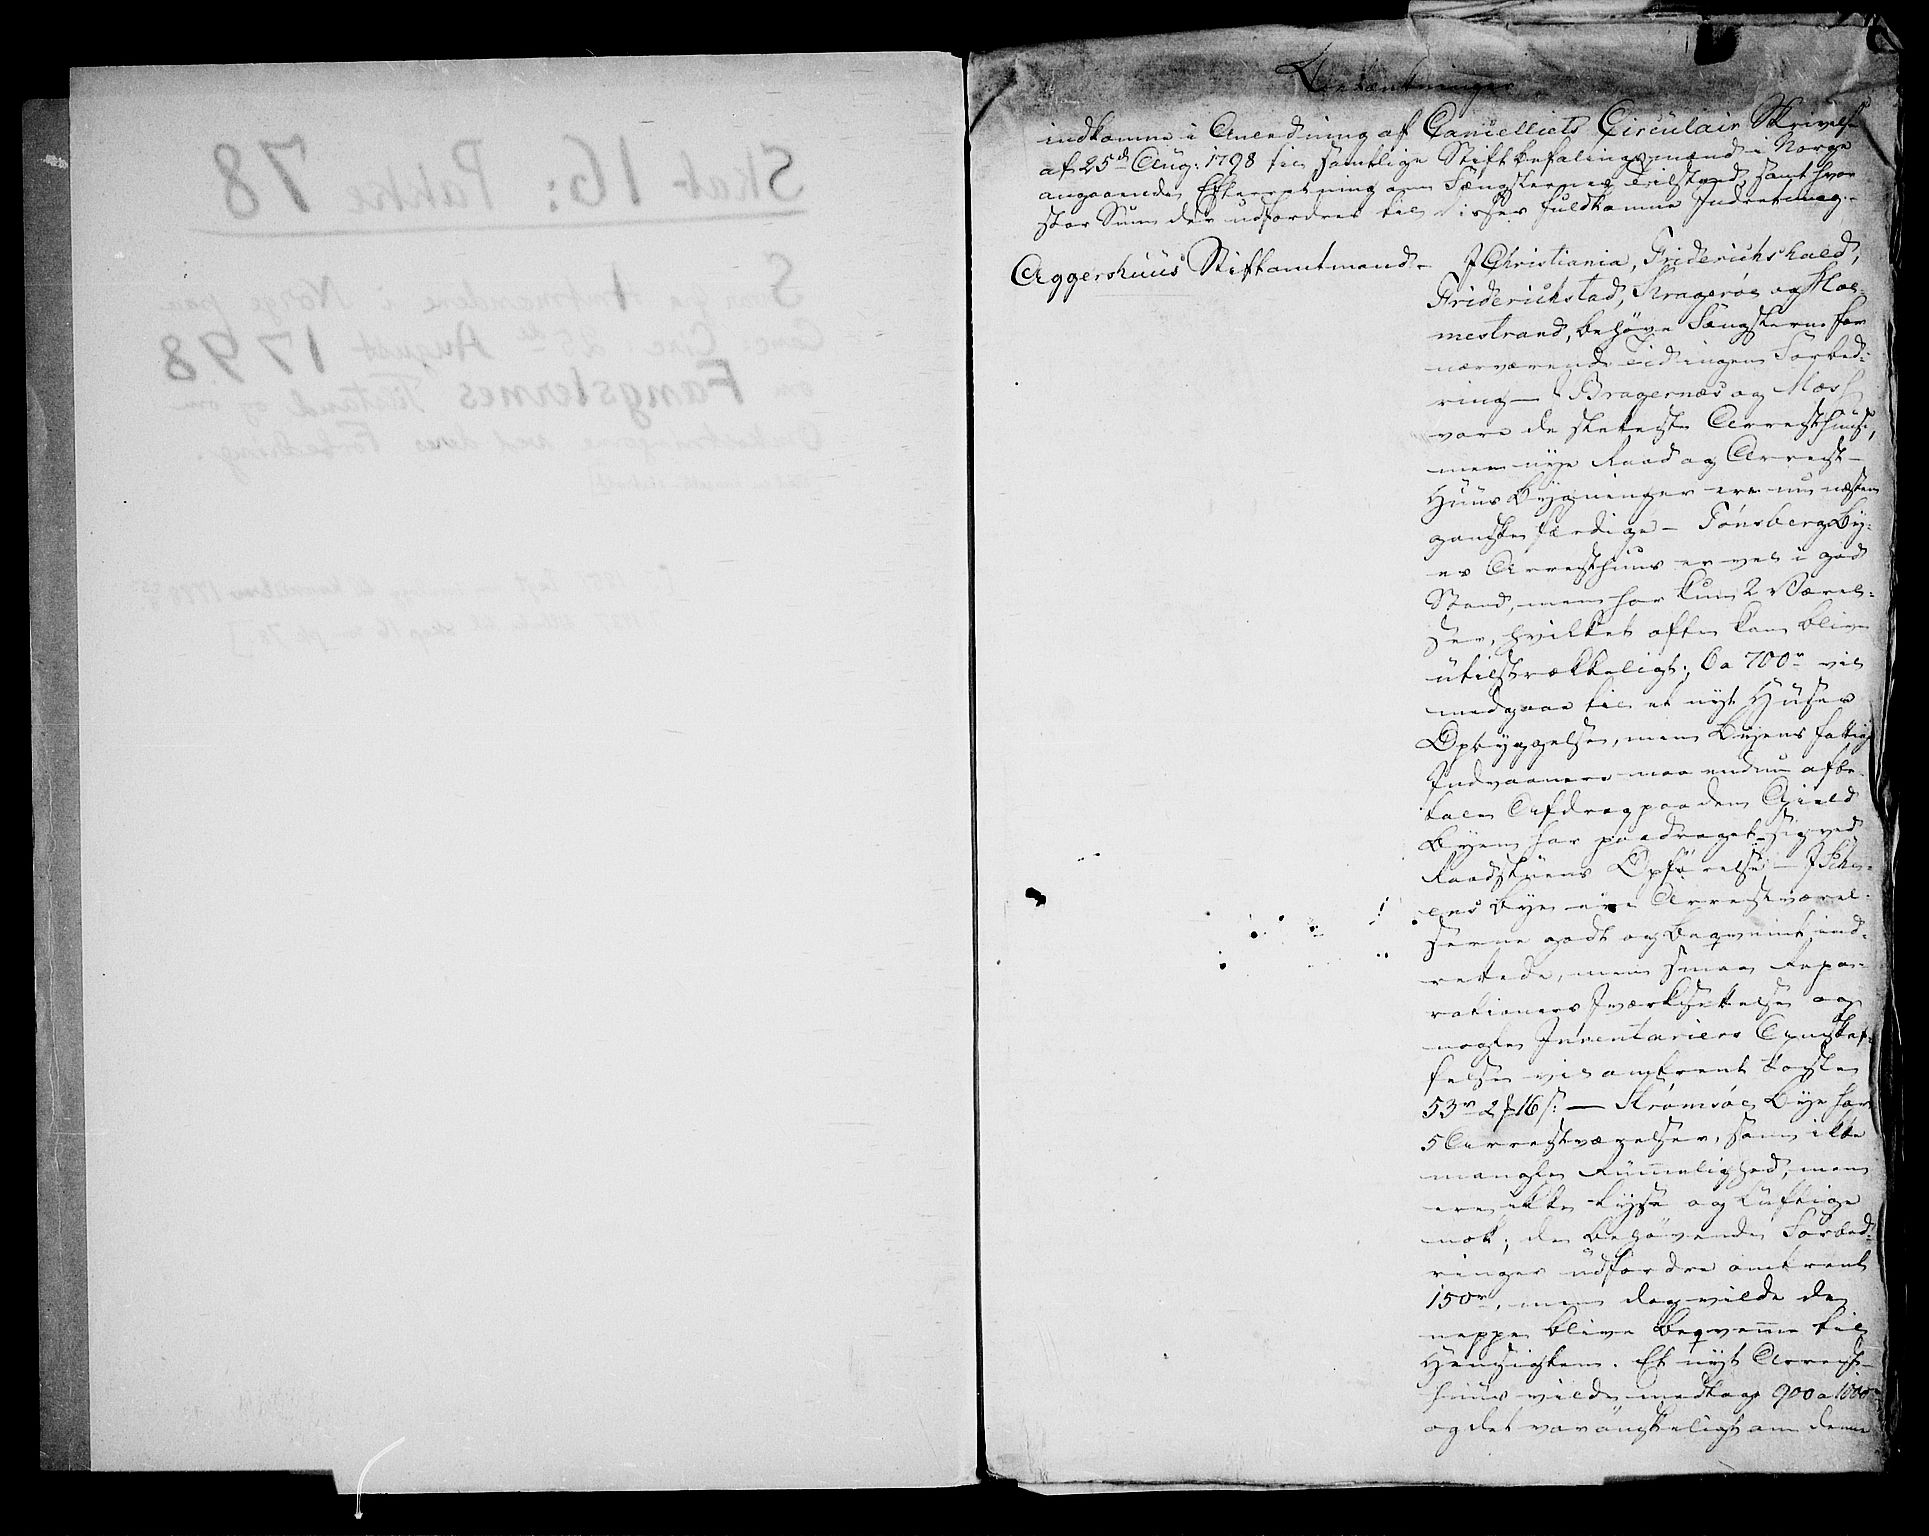 Skab 16: Pakke 78
Amtmændene i Norge paa
Canc. Circ. 25de August 1798
om Fængslernes Tilstand og om
Omkostningerne ved deres Forbedring.
Betænkninger
indkomne i Anledning af Cancelliets Circulair Skrivelse
af 25de Aug: 1798 til samtlige Stiftbefalingsmænd i Norge
angaaende Efterretning om Fængslernes Tilstand, samt hvor
stor Sum der udfordres til disses fuldkomne Indretning.
Aggershuus Stiftamtmand - I Christiania, Friderichshald,
Friderichstad, Kragerøe og Hol-
mestrand, behøve Fængslerne for
nærværende Tid ingen Forbed-
ring - Bragernæs og Moss
vare de sletteste Arresthuuse,
men nye Raad og Arrest-
Huus Bygninger ere nu næsten
ganske færdige - Tønsberg By-
es Arresthuus er vel i god
Stand, men har kun 2 Værel-
ser, hvilket ofte kan blive
utilstrækkeligt; 6 a 700 rd vil
medgaae til et nyt Huses
Opbyggelse, men Byens fattige
Indvaanere maae endnu afbe-
tale Afdrag paa den Gield
Byen har paadraget sig ved
Raadstuens Opførelse - I Schee-
ens Bye ere Arrestværel-
serne godt og beqvemt ind-
rettede, men smaa Repa-
rationers Iværksættelse og
nogle Inventariers Anskaf-
felse vil omtrent koste
53 rd 2 # 16 s: - Strømsøe Bye har
5 Arrestværelser, som ikke
mangle Rummelighed, men
ere ikke lyse og luftige
nok; de behøvende Forbed-
ringer udfordre omtrent
150 rd, men dog vilde de
neppe blive beqvemme til
Hensigten. Et nyt Arrest-
huus vilde medtage 900 a 1000 rd
og det var ønskeligt om denne